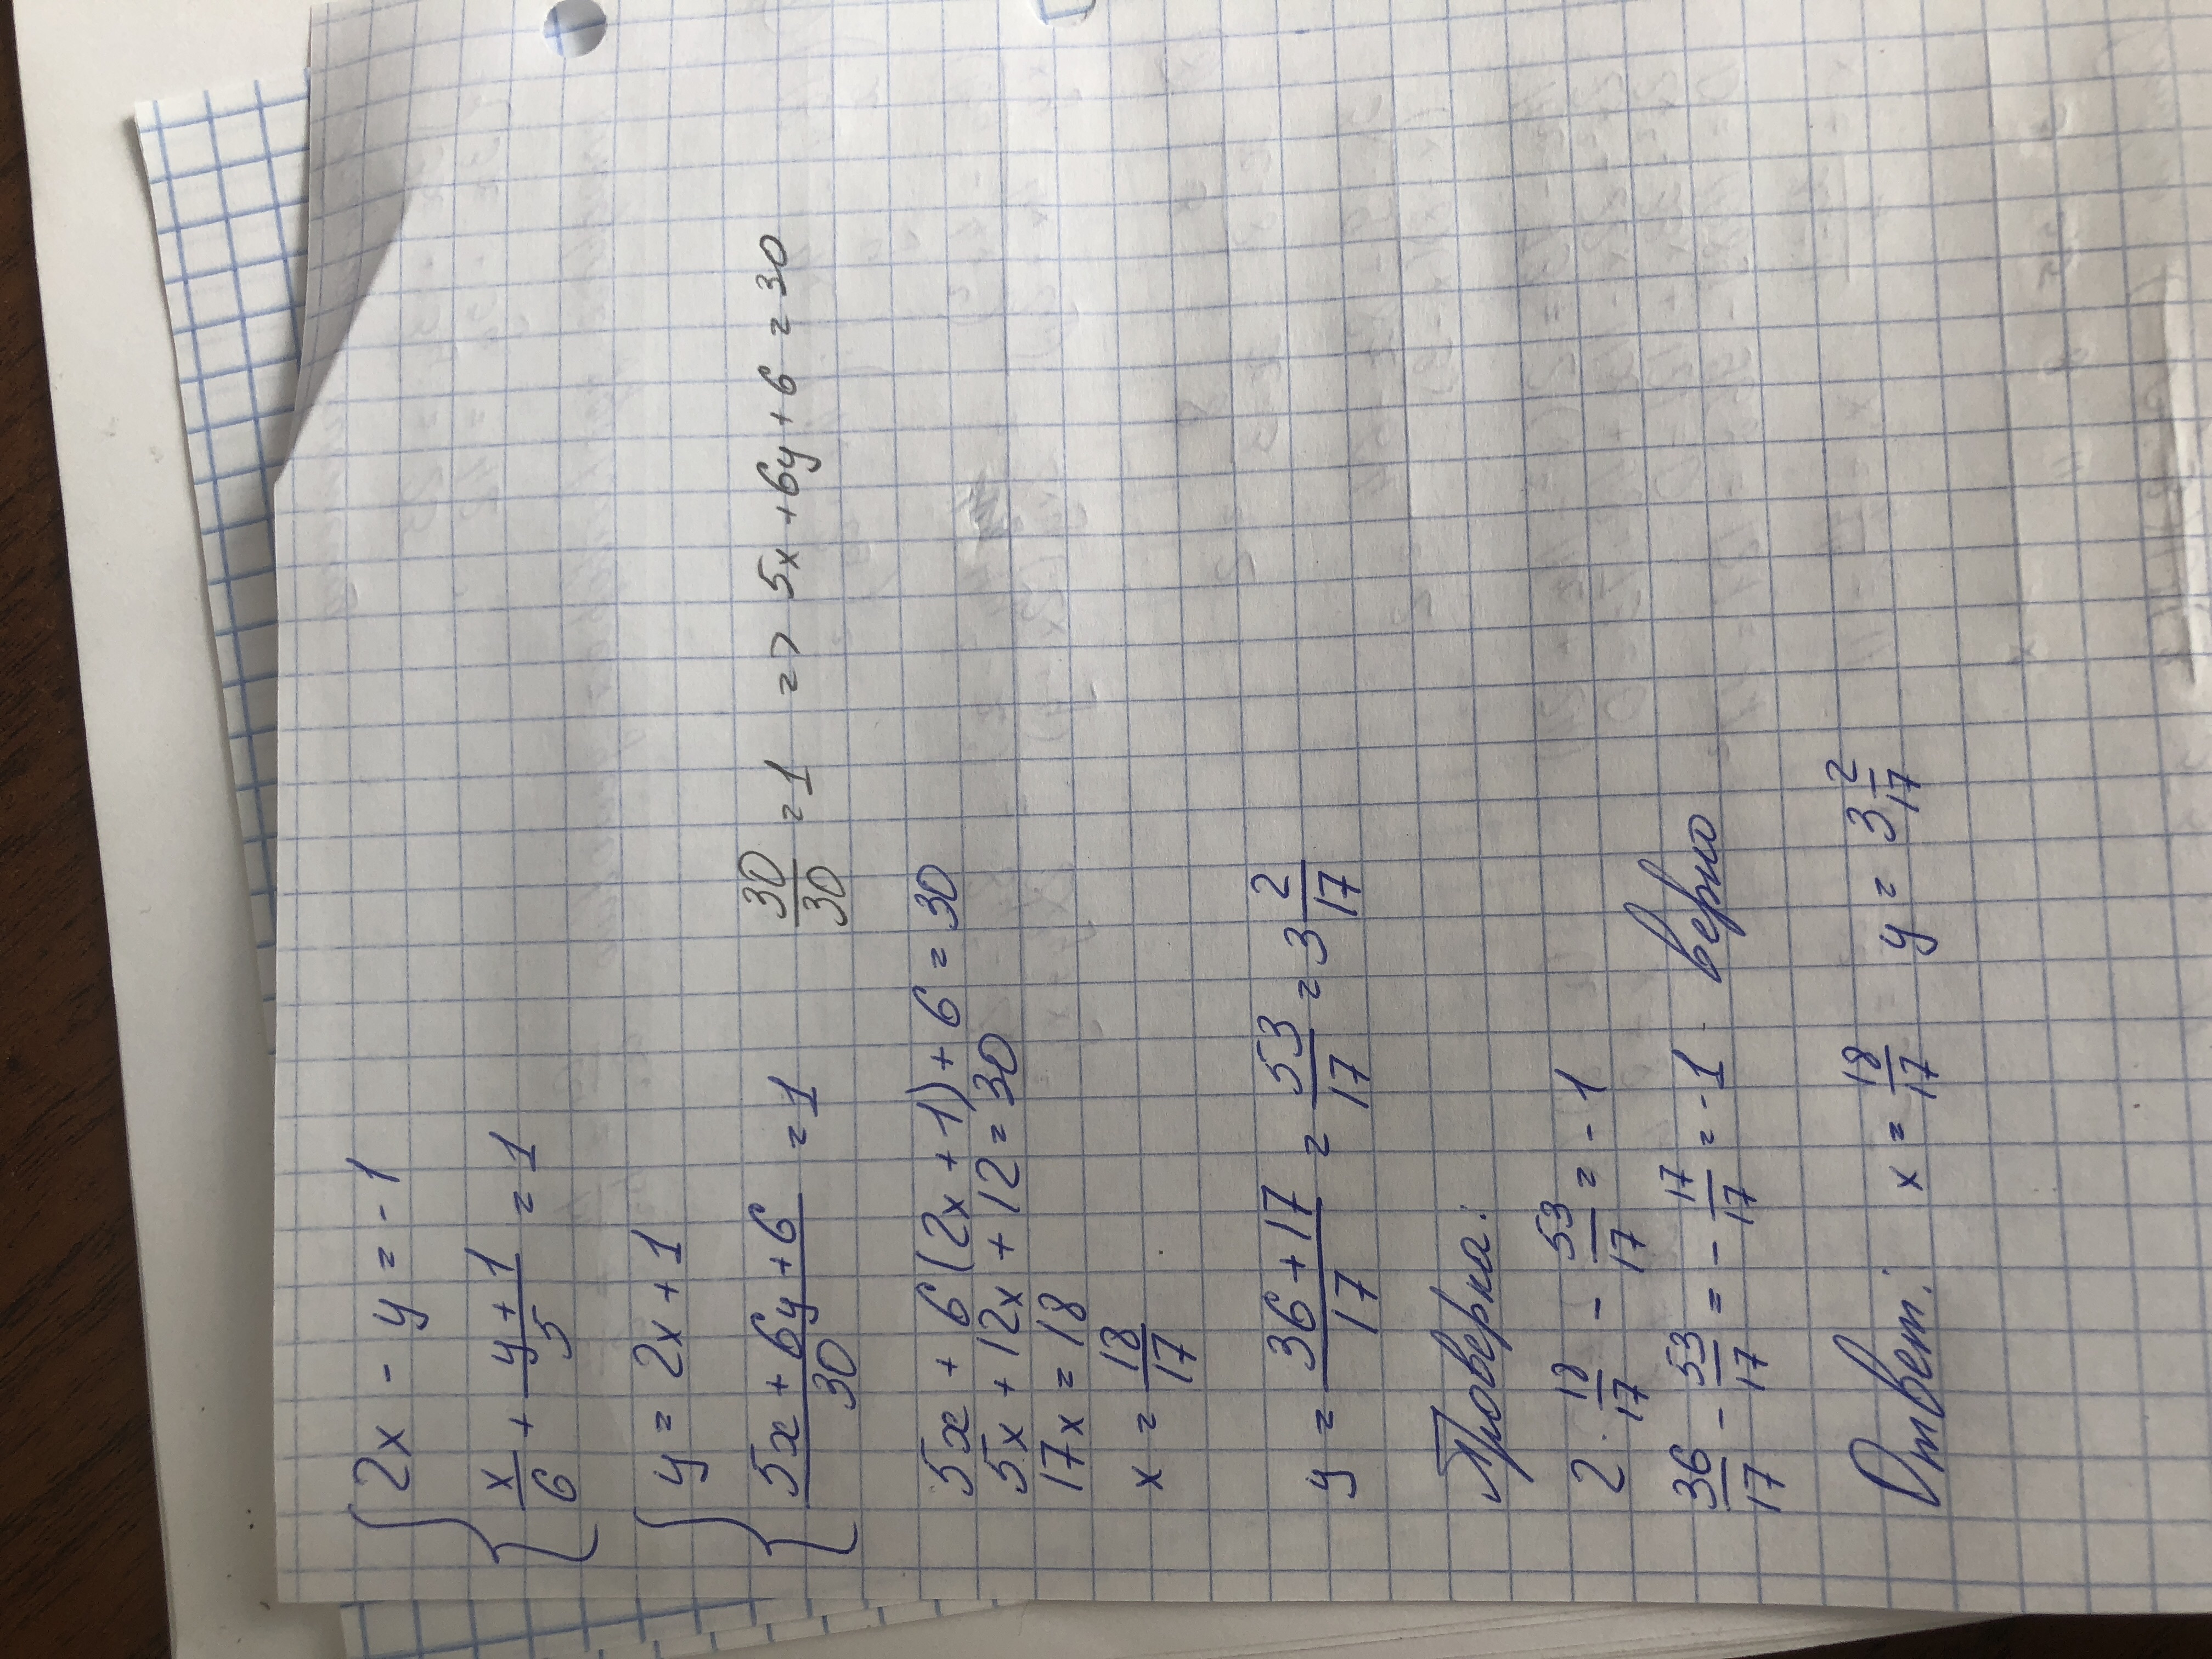 2x - y = -1
x/6 + (y+1)/5 = 1
y = 2x + 1
(5x + 6y + 6)/30 = 1 30/30 = 1 => 5x + 6y + 6 = 30
5x + 6(2x + 1) + 6 = 30
5x + 12x + 12 = 30
17x = 18
x = 18/17
y = (36 + 17)/17 = 53/17 = 3 2/17
Проверка:
2 · 18/17 - 53/17 = -1
36/17 - 53/17 = - 17/17 = -1 верно
Ответ: x = 18/17 y = 3 2/17